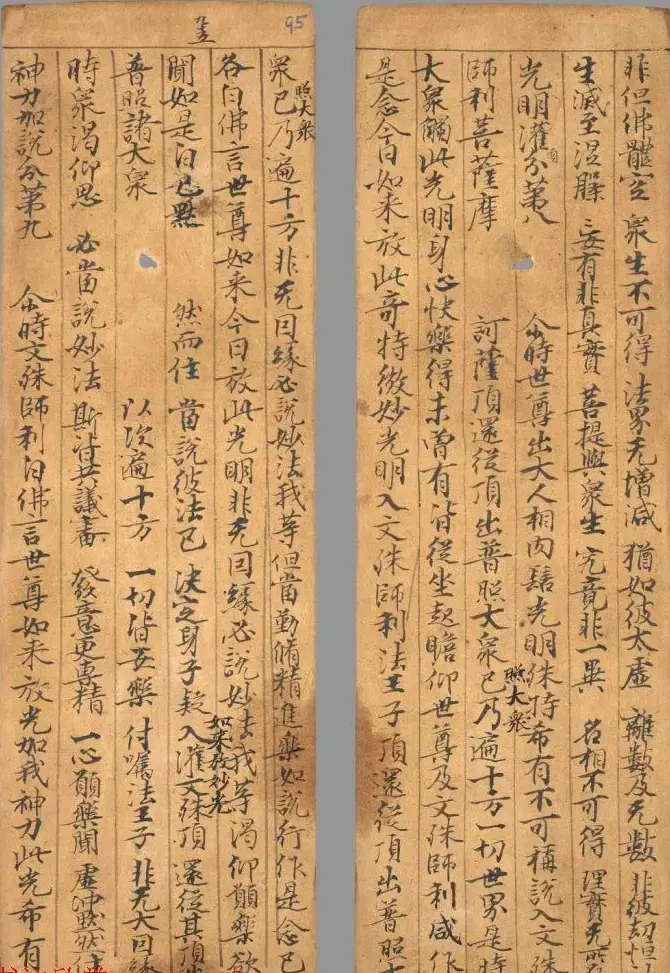 95
非但佛體空 衆生不可得 法界无增減 猶如彼太虛 離數及无數 非彼劫恒
生滅至涅槃 妄有非真實 菩提與衆生 究竟非一異 名相不可得 理實无所
光明灌頂分第八 尒時世尊出大人相肉髻光明殊特希有不可稱說入文殊
師利菩薩摩 訶薩頂還從頂出普照大衆已乃遍十方一切世界是時
照大衆
大衆觸此光明身心快樂得未曾有皆從坐起瞻仰世尊及文殊師利咸作
是念今日如來放此奇特微妙光明入文殊師利法王子頂還從頂出普照大
照大衆
衆已乃遍十方非无因緣必說妙法我等但當勤脩精進樂如說行作是念已
各白佛言世尊如來今日放此光明非无因緣必說妙法我等渴仰願樂欲
如來放妙光
聞如是白已默 然而住 當說彼法已 決定身子疑 入灌文殊頂 還從其頂
普照諸大衆 以次遍十方 一切皆安樂 付囑法王子 非无大因緣
時衆渴仰思 必當說妙法 斯皆共議審 發意更專精 一心願樂聞 虛沖默然住
神力加說分第九 尒時文殊師利白佛言世尊如來放光加我神力此光希有